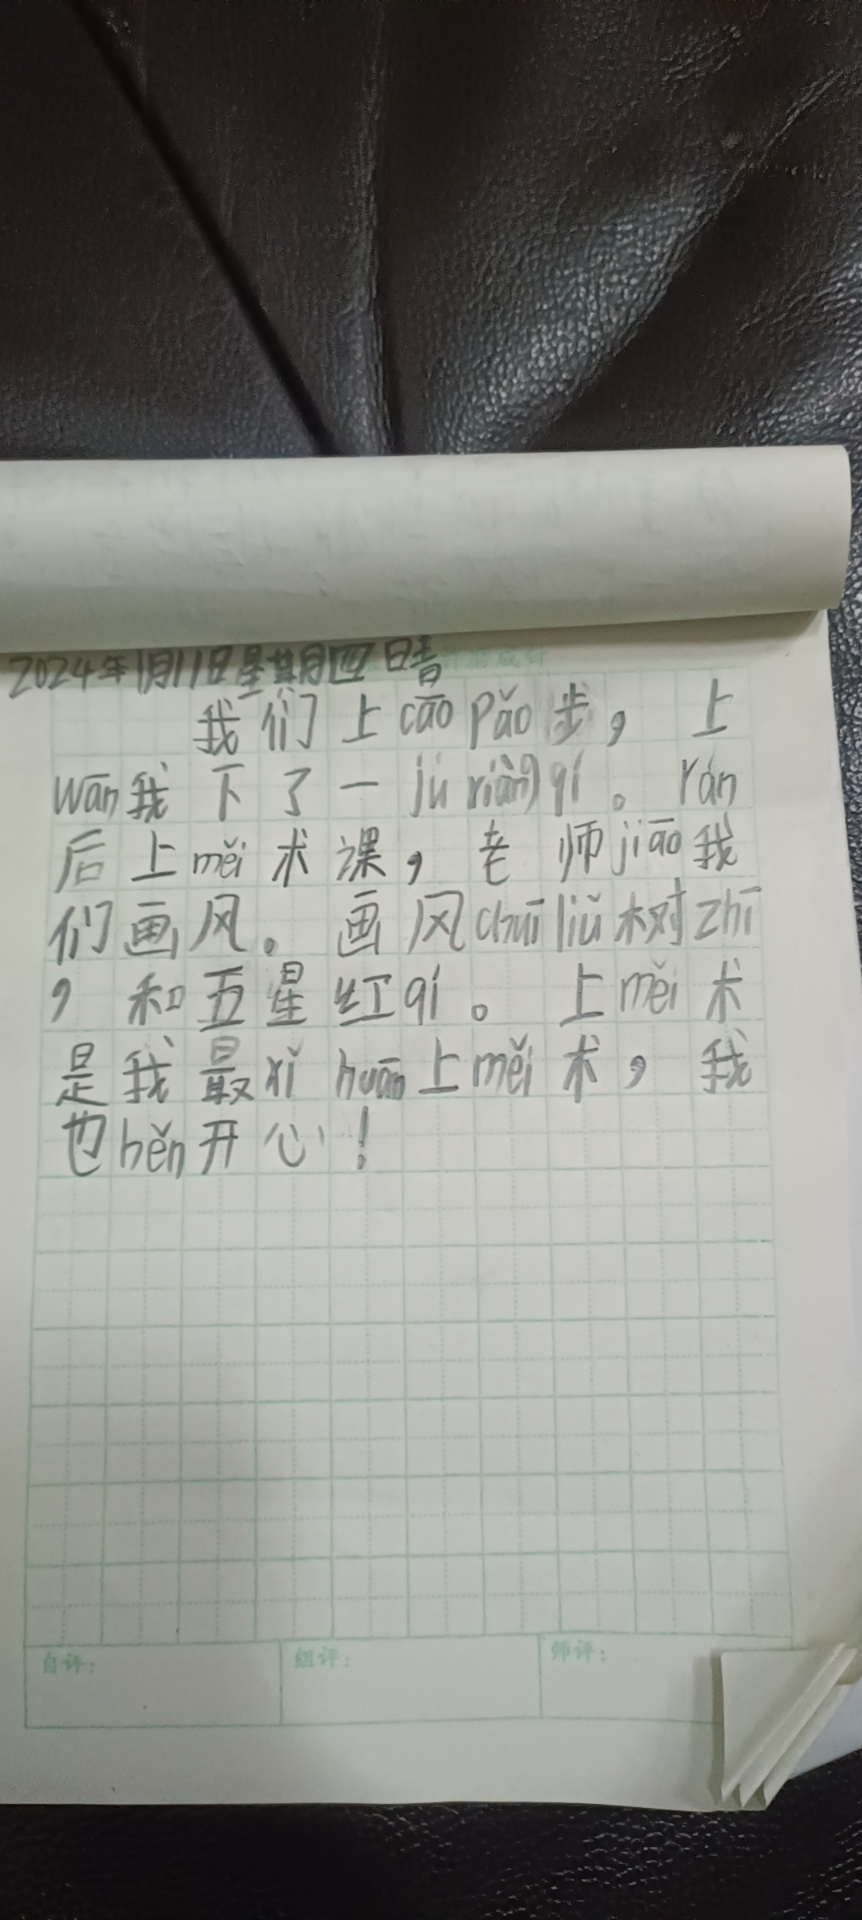 2024年1月11日星期四 晴
我们上cāo pǎo步，上
wān我下了一jú xiàng qí。rán
后上měi术课，老师jiāo我
们画风。画风chuī liǔ树zhī
，和五星红qí。上měi术
是我最xǐ huān上měi术，我
也hěn开心！
自评： 组评： 师评：